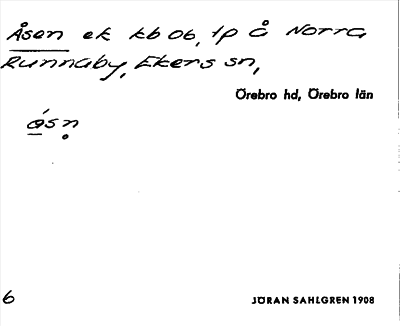 Åsen ek kb ob, tp å Norra
Runnaby, Ekers sn,
Örebro hd, Örebro län
ásṇ
6
JÖRAN SAHLGREN 1908